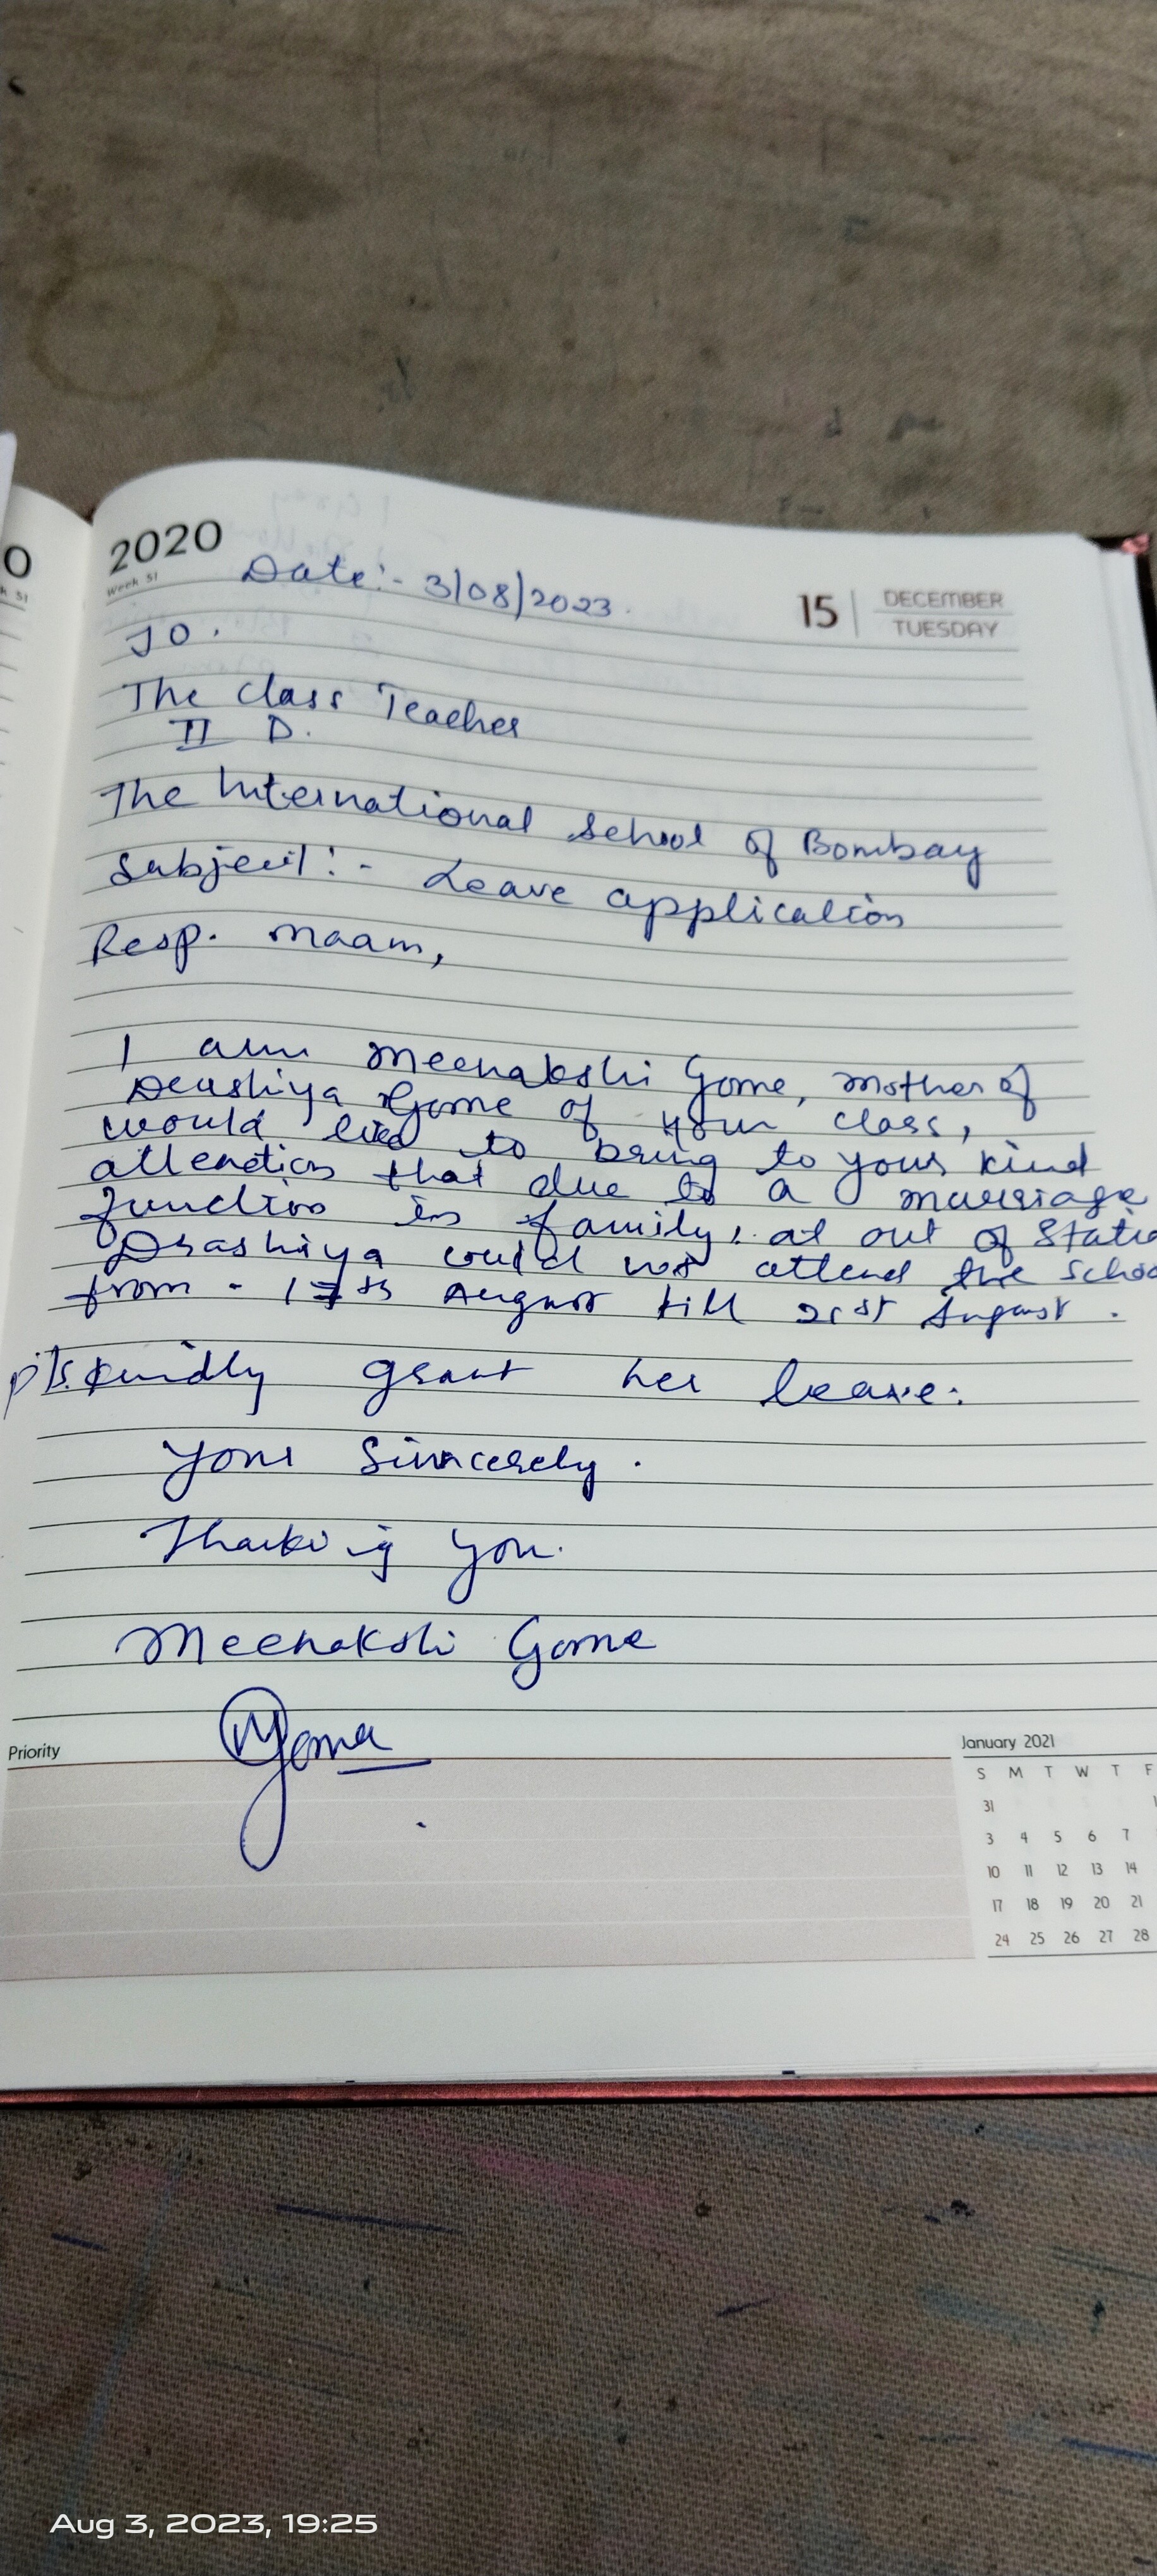 2020
Week 51
Date:- 3/08/2023.
15 DECEMBER
TUESDAY
TO.
The Class Teacher
II D.
The International School of Bombay
Subject:- Leave application
Resp. Maam,
I am Meenakshi Gome, mother of
Gome of your class,
would to bring to your kind
attention that due to a marriage
function in family, at out of
could not attend the
from - 17th August till 21st August.
kindly grant her leave.
Your Sinncerely.
Thanking you.
Meenakshi Gome
Priority
January 2021
S M T W T F
31
3 4 5 6 7
10 11 12 13 14
17 18 19 20 21
24 25 26 27 28
Aug 3, 2023, 19:25